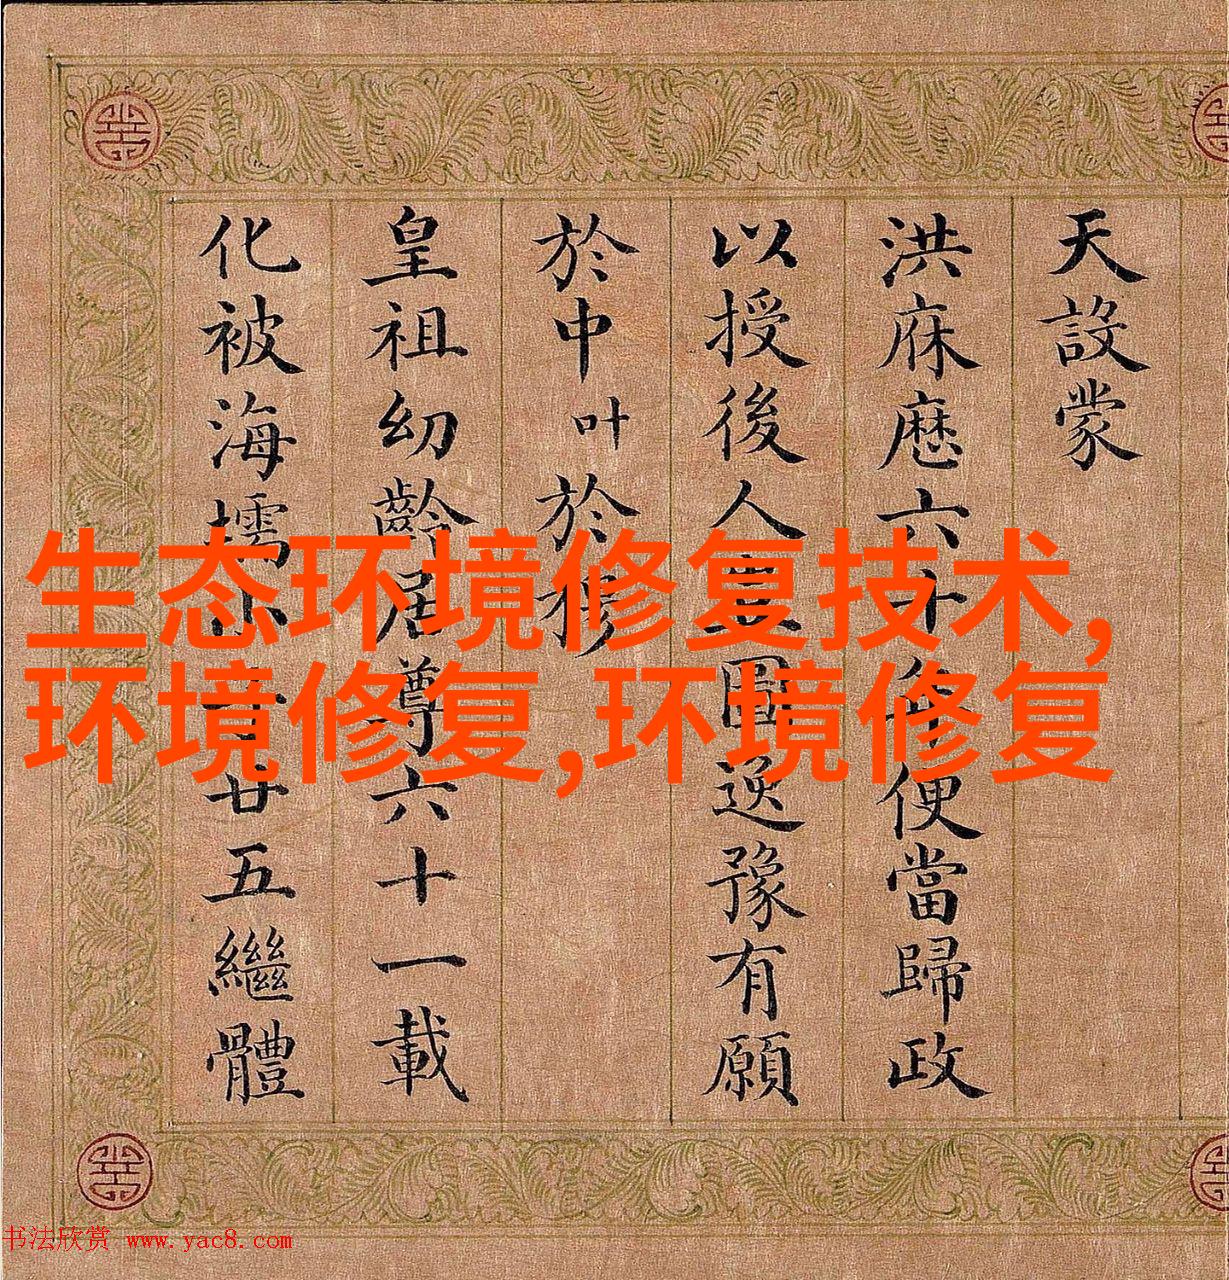 天設蒙
洪庥厯六十年便當歸政
以授後人豈圖逸豫有願
於中叶於穆
皇祖幼齡居尊六十一載
化被海壖小子廿五繼體
生态环境修复技术,
环境修复,环境修复
书法欣赏 www.yac8.com